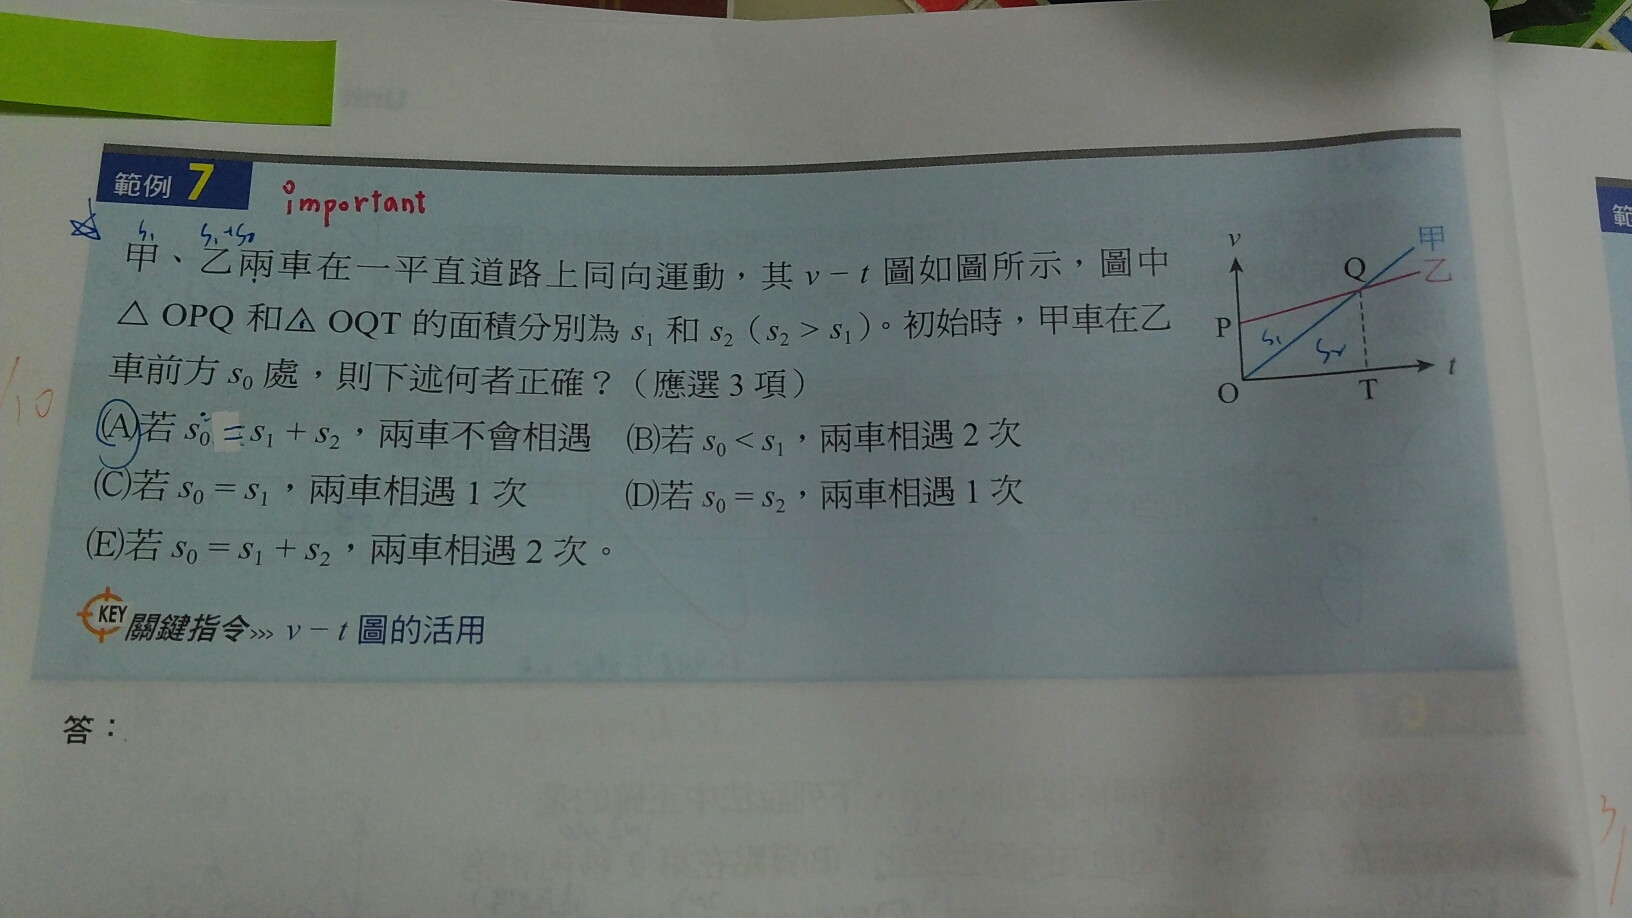 範例 7 important
s₁ s₁+s₀
甲、乙兩車在一平直道路上同向運動，其 v－t 圖如圖所示，圖中
△ OPQ 和△ OQT 的面積分別為 s₁ 和 s₂（s₂ > s₁）。初始時，甲車在乙
車前方 s₀ 處，則下述何者正確？（應選 3 項）
(A)若 s₀ = s₁ + s₂，兩車不會相遇 (B)若 s₀ < s₁，兩車相遇 2 次
(C)若 s₀ = s₁，兩車相遇 1 次 (D)若 s₀ = s₂，兩車相遇 1 次
(E)若 s₀ = s₁ + s₂，兩車相遇 2 次。
KEY 關鍵指令››› v－t 圖的活用
答：
v 甲
Q 乙
P s₁ s₂ t
O T
範